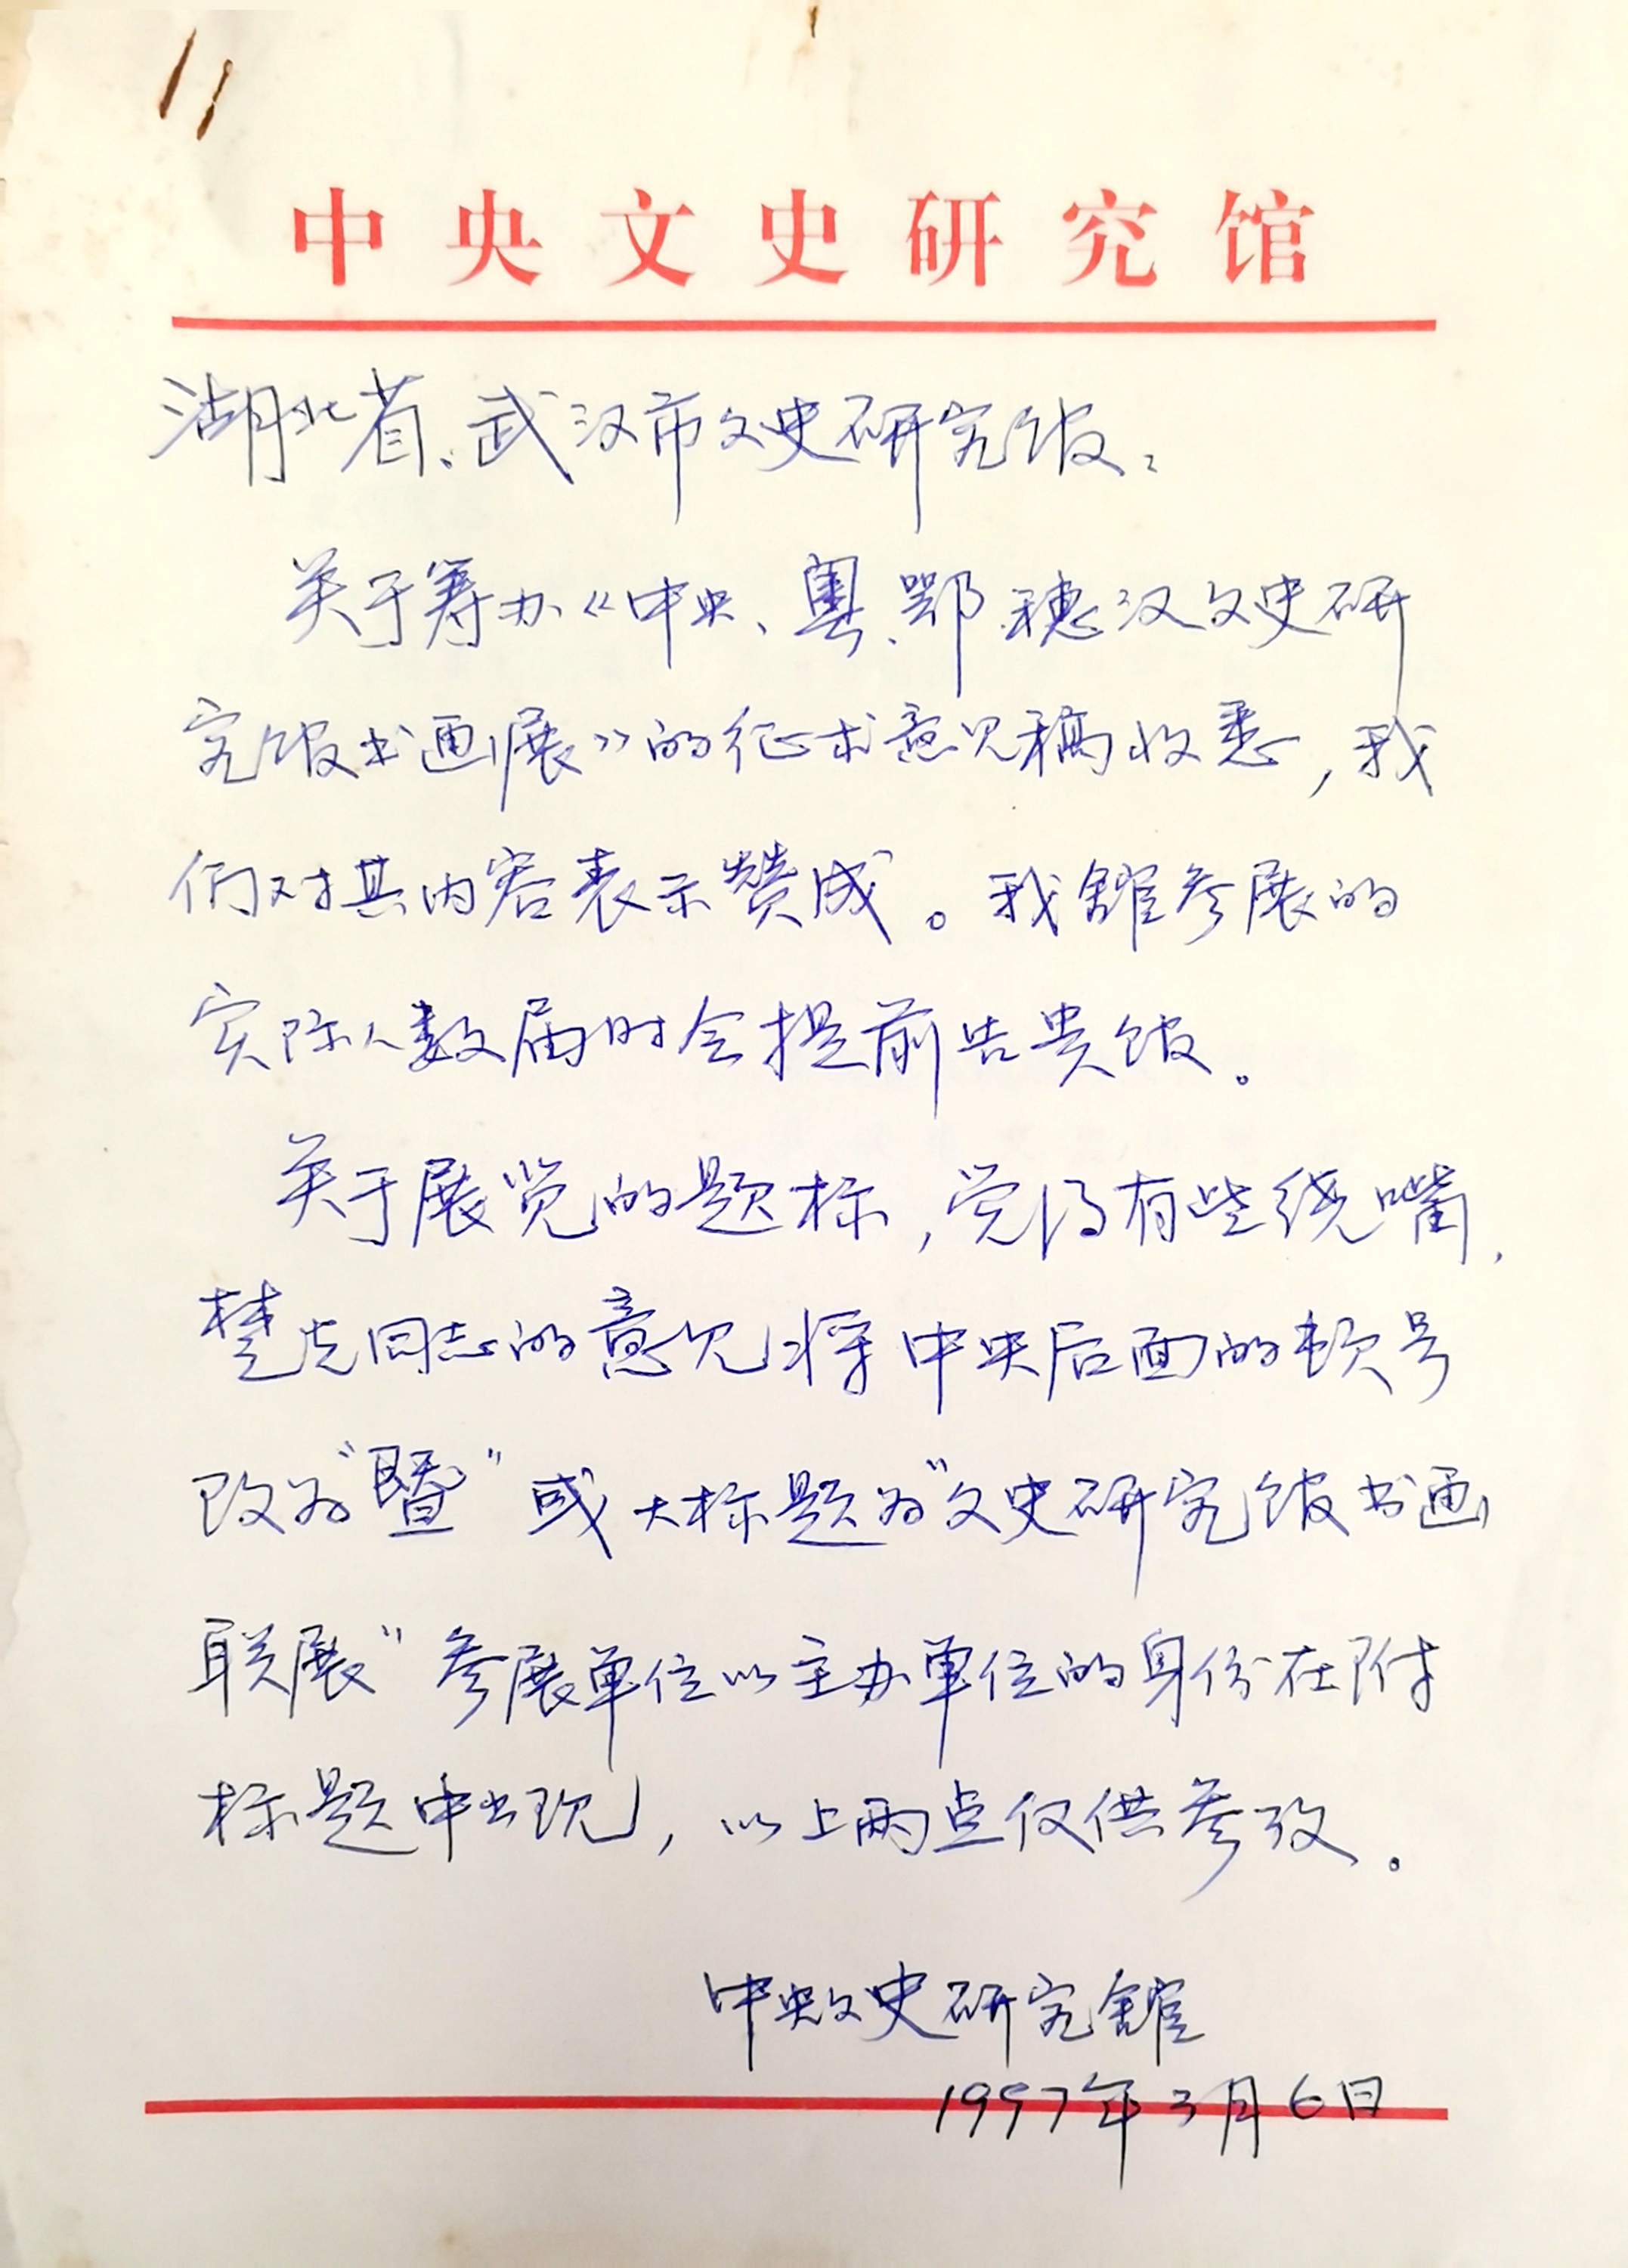 中央文史研究馆
湖北省、武汉市文史研究馆：
关于筹办《中央、粤、鄂、穗汉文史研
究馆书画展》的征求意见稿收悉，我
们对其内容表示赞成。我舘参展的
实际人数届时会提前告贵馆。
关于展览的题标，觉得有些绕嘴，
楚光同志的意见将中央后面的顿号
改为“暨”或大标题为“文史研究馆书画
联展”参展单位以主办单位的身份在附
标题中出现，以上两点仅供参攷。
中央文史研究舘
1997年3月6日